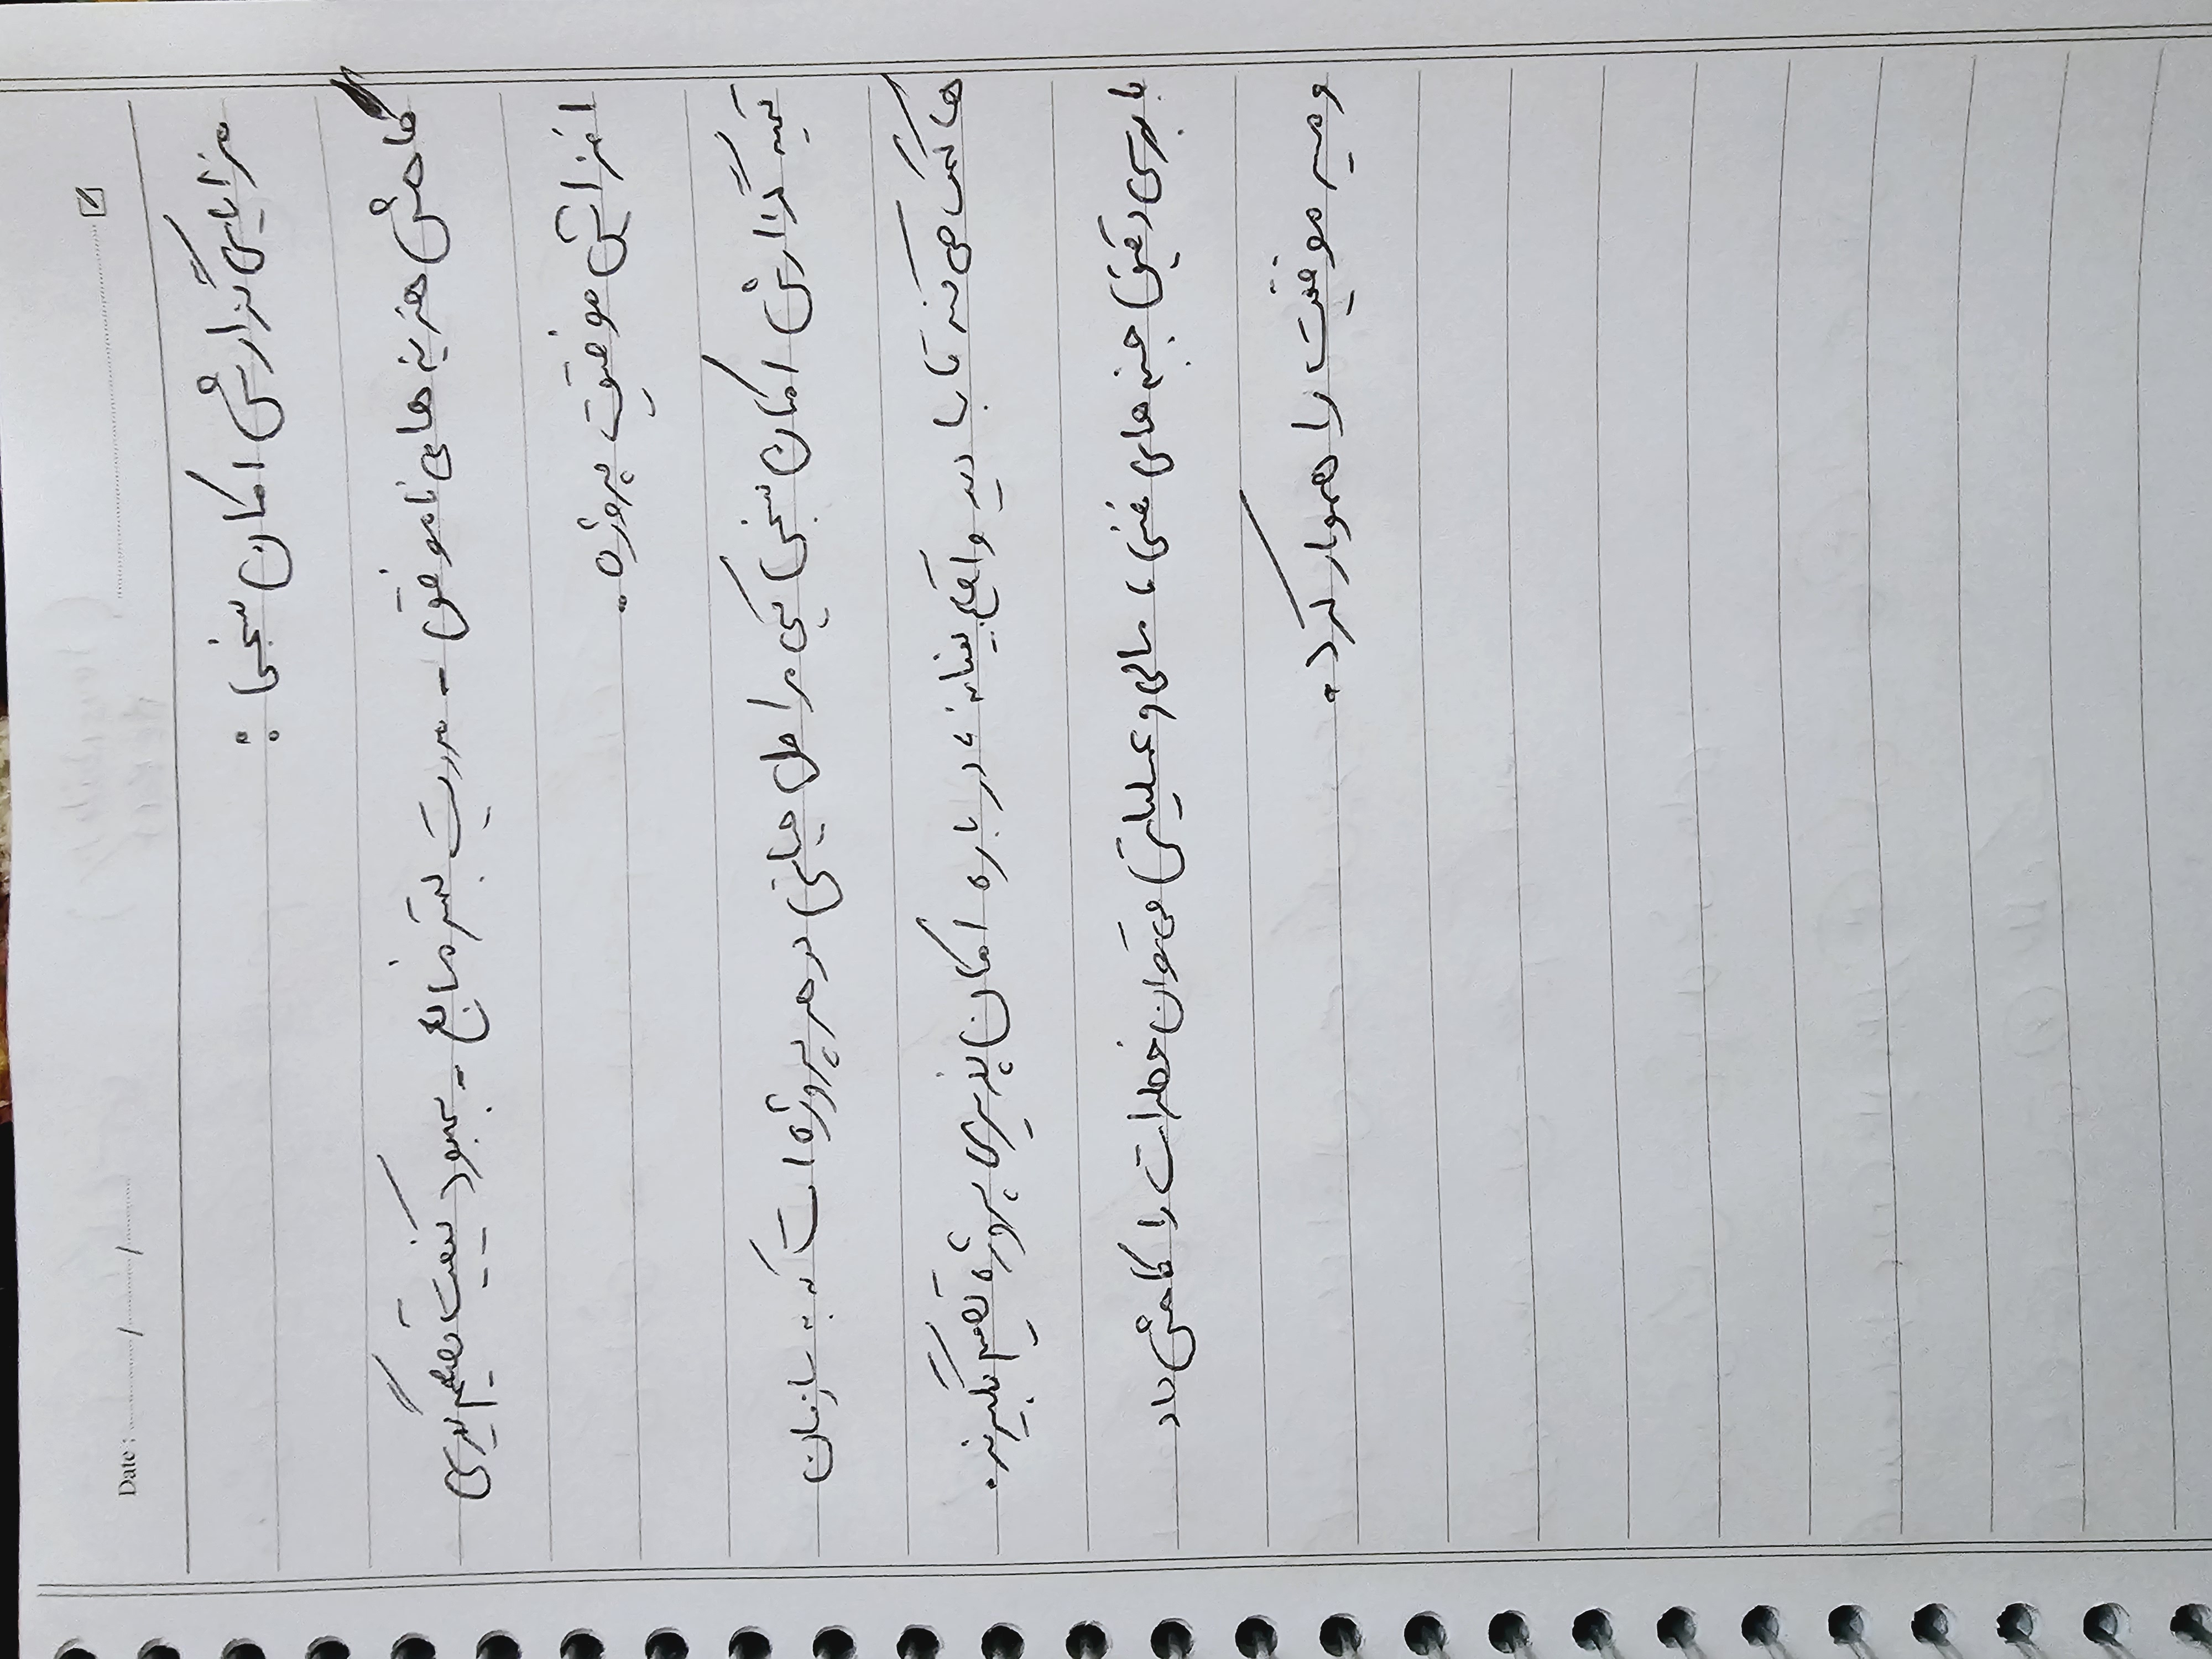 Date : ............ / ......... / .........
مزایای گزارش امکان سنجی :
کاهش هزینه های ناموفق - مدیریت بهتر منابع - بهبود کیفیت تصمیم گیری
افزایش موفقیت پروژه .
تهیه گزارش امکان سنجی یکی مراحل حیاتی در هر پروژه است که به سازمان
ها کمک می کند تا با دید واقع بینانه ، در باره امکان پذیری پروژه تصمیم بگیرند .
با بررسی دقیق جنبه های فنی ، مالی و عملیاتی می توان خطرات را کاهش داد
و مسیر موفقیت را هموار کرد .